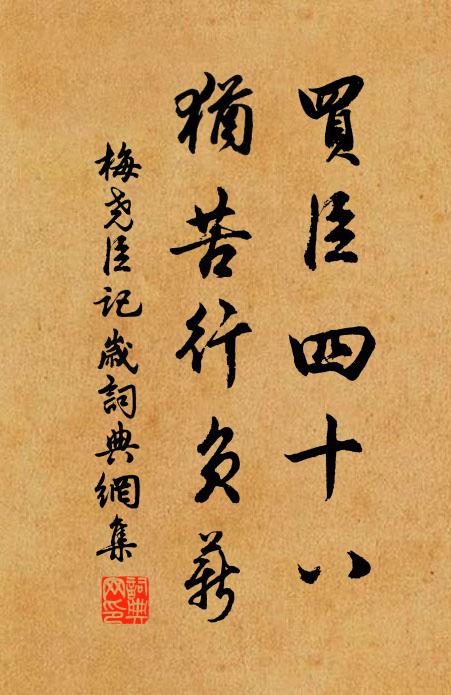 買臣四十八
猶苦行負薪
梅尧臣記歲詞典網集
詞典
网印